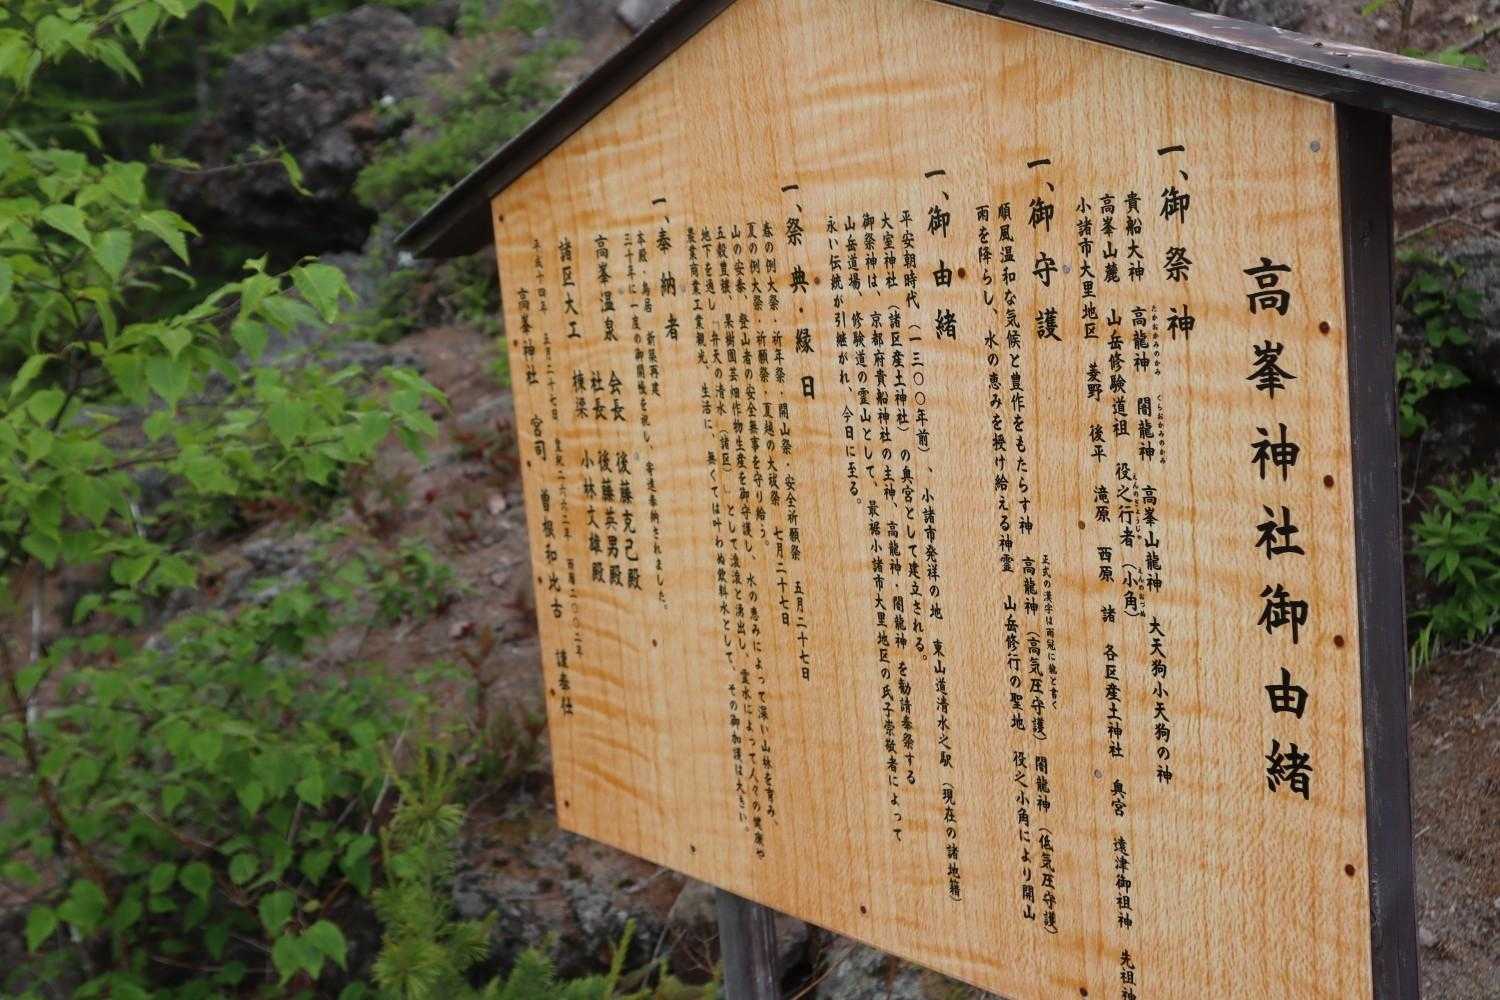 高峯神社御由緒
一、御祭神
貴船大神 高龍神 闇龍神 高峯山龍神 大天狗小天狗の神
たかおかみのかみ くらおかみのかみ
高峯山麓 山岳修験道祖 役之行者（小角）
えんのぎょうじゃ えんのおづぬ
小諸市大里地区 菱野 後平 滝原 西原 諸 各区産土神社 奥宮 遠津御祖神 先祖神
一、御守護
順風温和な気候と豊作をもたらす神 高龍神（高気圧守護）闇龍神（低気圧守護）
正式の漢字は雨冠に龍と書く
雨を降らし、水の恵みを授け給える神霊 山岳修行の聖地 役之小角により開山
一、御由緒
平安朝時代（一三〇〇年前）、小諸市発祥の地 東山道清水之駅（現在の諸地籍）
大室神社（諸区産土神社）の奥宮として建立される。
御祭神は、京都府貴船神社の主神、高龍神・闇龍神 を勧請奉祭する
山岳道場、修験道の霊山として、最裾小諸市大里地区の氏子崇敬者によって
永い伝統が引継がれ、今日に至る。
一、祭典・縁日
春の例大祭・祈年祭・開山祭・安全祈願祭 五月二十七日
夏の例大祭・祈願祭・夏越の大祓祭 七月二十七日
山の安泰、登山者の安全無事を守り給う。
五穀豊穣、果樹園芸畑作物生産を御守護し、水の恵みによって深い山林を育み、
地下を通し「弁天の清水（諸区）」として滾滾と湧出し、霊水によって人々の健康や
農業商業工業観光、生活に、無くては叶わぬ飲料水として、その御加護は大きい。
一、奉納者
本殿・鳥居 新築再建
三十年に一度の御開帳を祝し、寄進奉納されました。
高峯温泉 会長 後藤克己殿
社長 後藤英男殿
諸区大工 棟梁 小林文雄殿
平成十四年 五月二十七日 皇紀二六六二年 西暦二〇〇二年
高峯神社 宮司 曽根和比古 謹奉仕